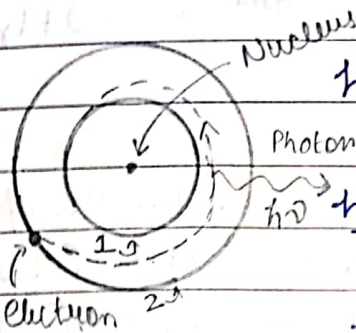 Nucleus
Photon
hν
1s
Electron
2s